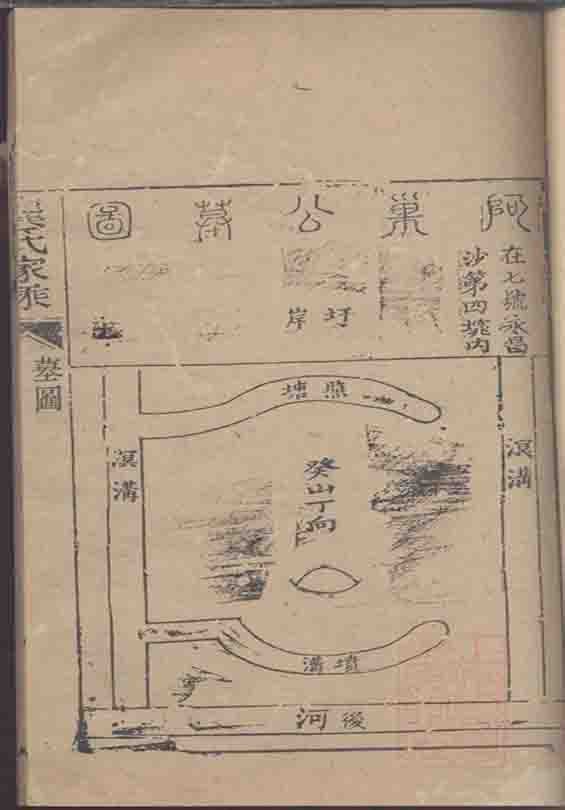 阿巢公墓圖
在七號永昌
沙第四内
圩岸
照塘
溝
癸山丁向
溝
墳溝
後河
氏家乘
墓圖